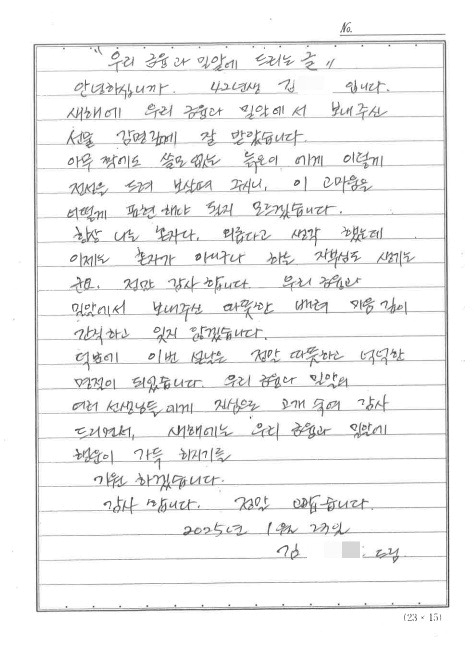 No.
"우리 금융과 밀알에 드리는 글"
안녕하십니까. 42년생 김 입니다.
새해에 우리 금융과 밀알에서 보내주신
선물 감명깊에 잘 받았습니다.
아무 짝에도 쓸모 없는 늙은이 에게 이렇게
정성을 드려 보살펴 주시니, 이 고마움을
어떻게 표현 해야 될지 모르겠습니다.
항상 나는 혼자다. 외롭다고 생각 했는데
이제는 혼자가 아니구나 하는 자부심도 생기는
군요. 정말 감사 합니다 우리 금융과
밀알에서 보내주신 따뜻한 배려 마음 깊이
간직하고 잊지 않겠습니다.
덕분에 이번 설날은 정말 따뜻하고 넉넉한
명절이 되었습니다. 우리 금융과 밀알의
여러 선생님들에게 진심으로 고개 숙여 감사
드리면서, 새해에는 우리 금융과 밀알에
행운이 가득 하시기를
기원 하겠습니다.
감사 합니다. 정말 고맙습니다.
2025년 1월 23일
김 드림
(23 × 15)